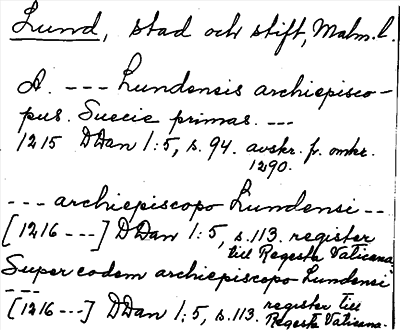 Lund, stad och stift, Malm. l.
A. --- Lundensis archiepisco-
pus. Suecie primas. ---
1215 DDan 1:5, s. 94. avskr. fr. omkr.
1290.
--- archiepiscopo Lundensi --
[1216 ---] DDan 1:5, s. 113. register
till Regesta Vaticana.
Super eodem archiepiscopo Lundensi
---
[1216 ---] DDan 1:5, s. 113. register till
Regesta Vaticana.